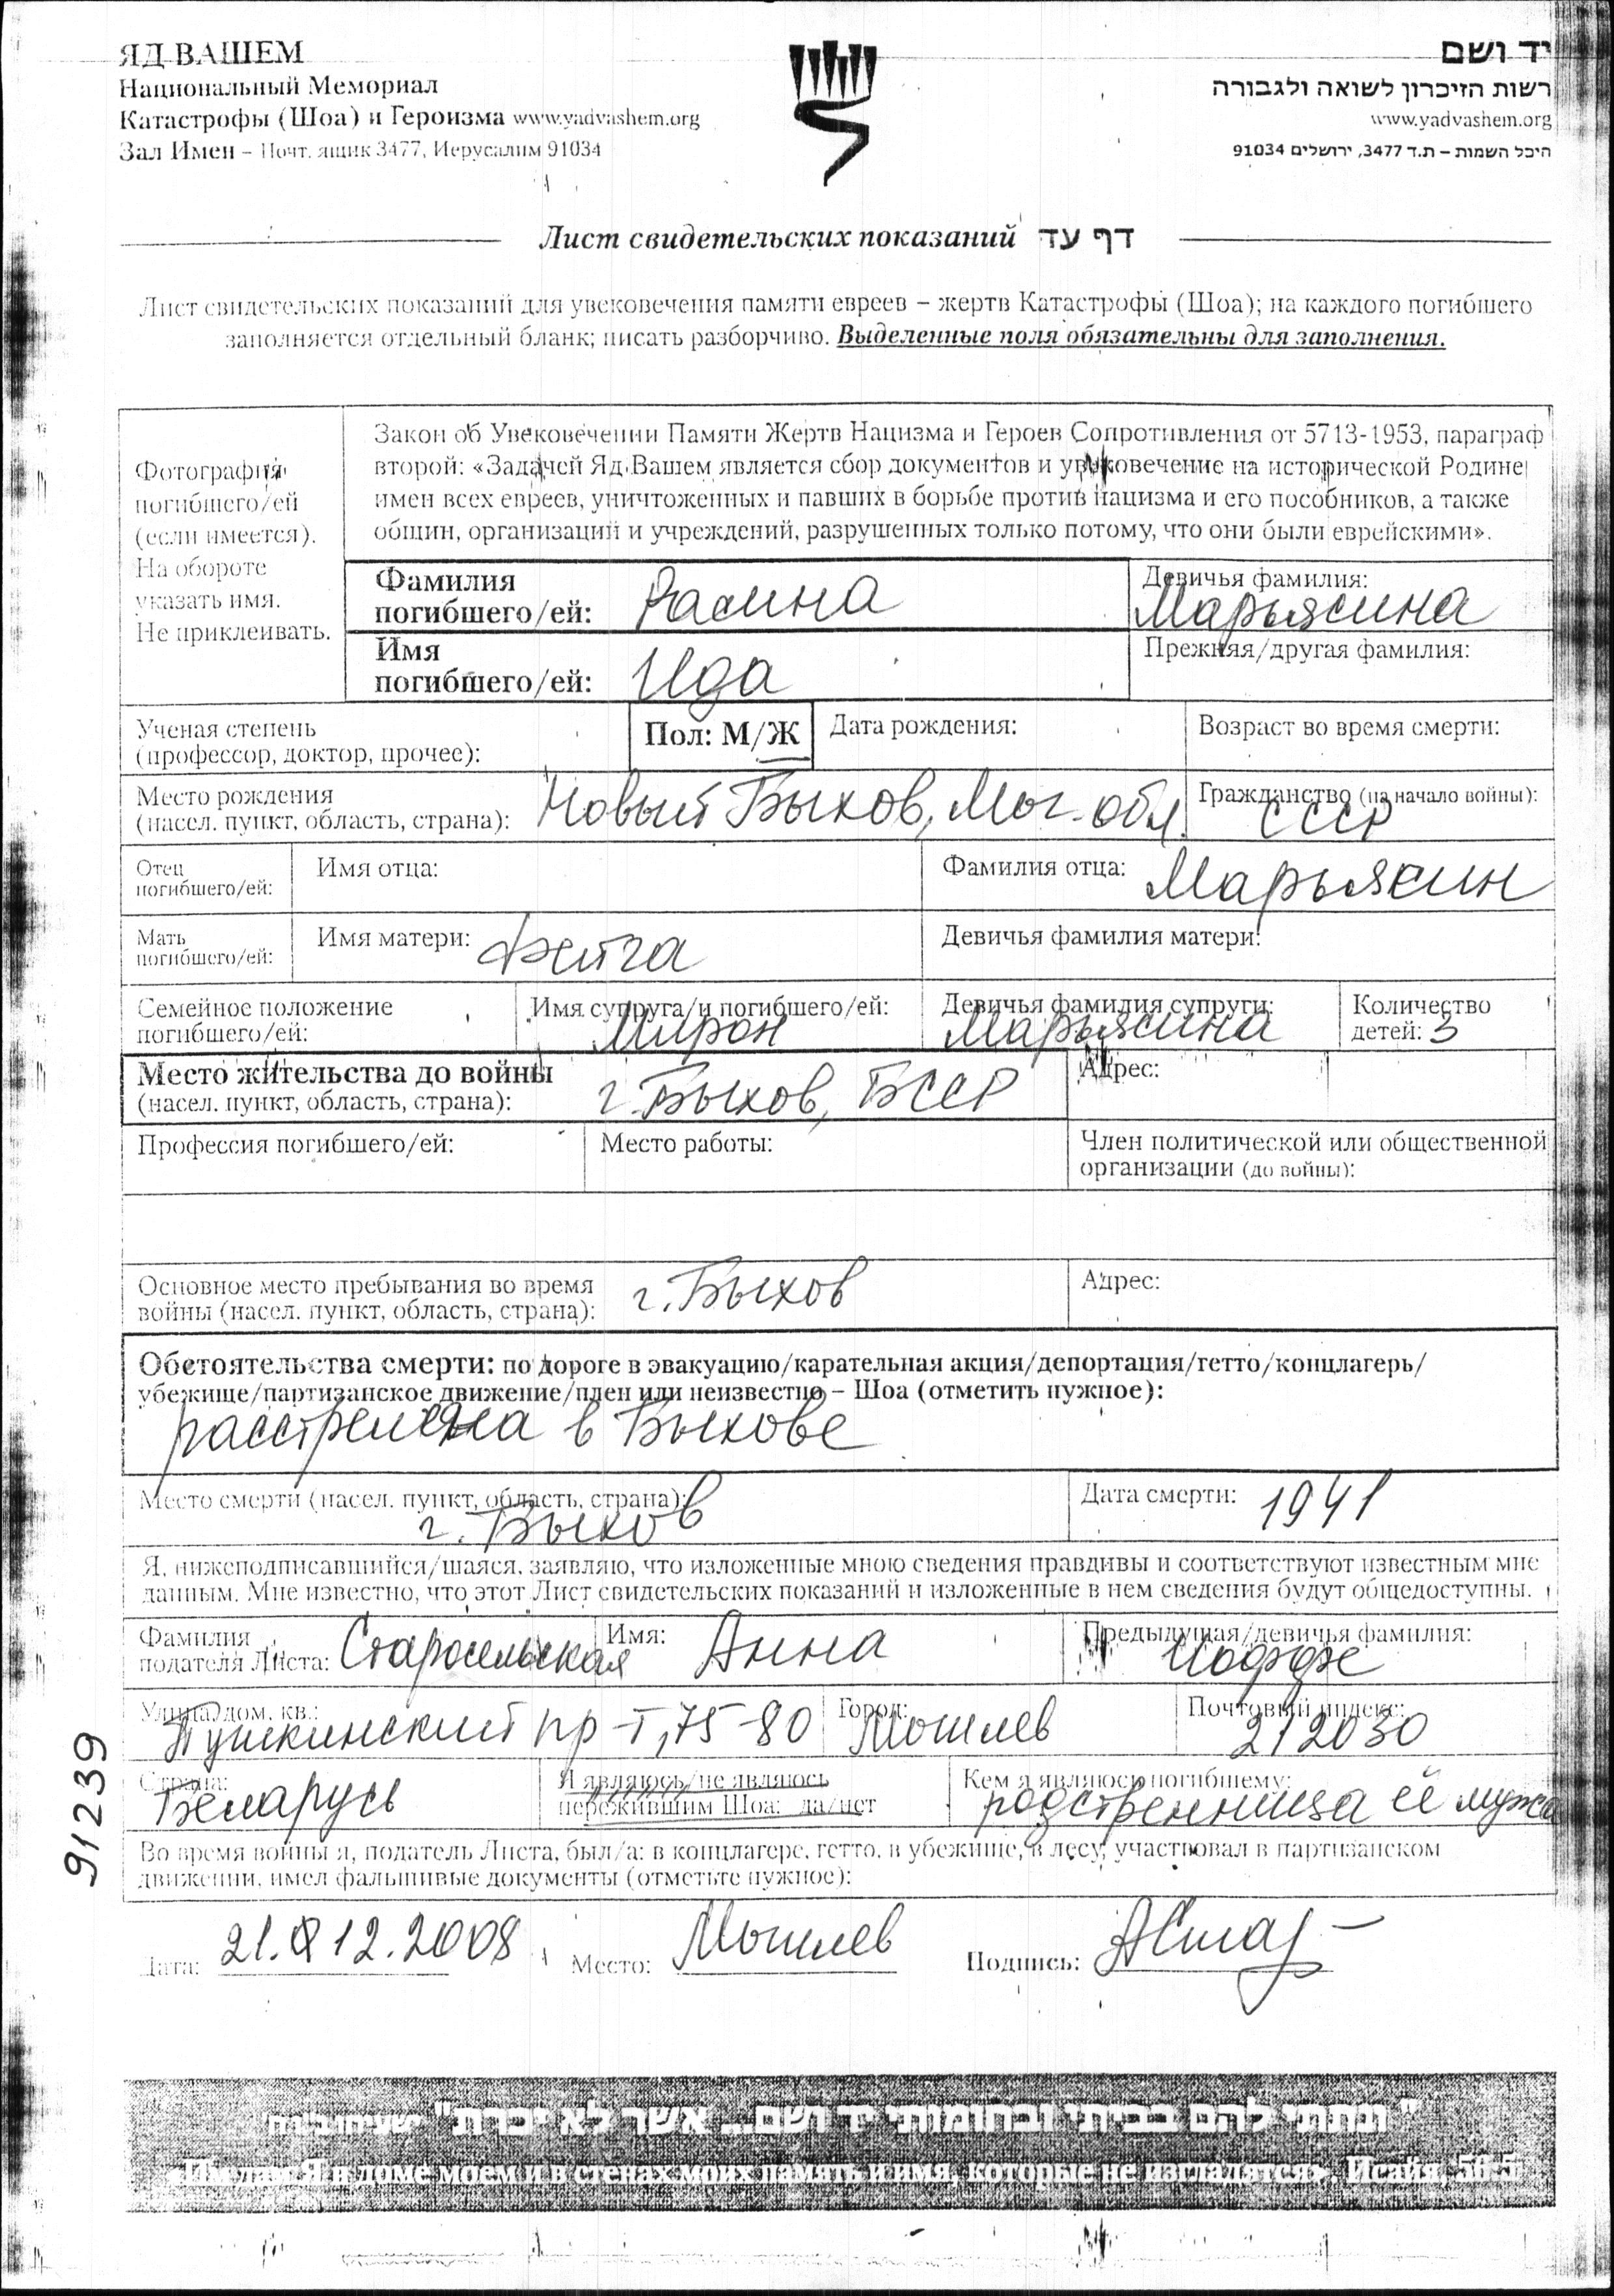 ЯД ВАШЕМ
Национальный Мемориал
Катастрофы (Шоа) и Героизма www.yadvashem.org
Зал Имен – Почт. ящик 3477, Иерусалим 91034
יד ושם
רשות הזיכרון לשואה ולגבורה
www.yadvashem.org
היכל השמות – ת.ד 3477, ירושלים 91034
Лист свидетельских показаний דף עד
Лист свидетельских показаний для увековечения памяти евреев – жертв Катастрофы (Шоа); на каждого погибшего
заполняется отдельный бланк; писать разборчиво. Выделенные поля обязательны для заполнения.
Фотография
погибшего/ей
(если имеется).
На обороте
указать имя.
Не приклеивать.
Закон об Увековечении Памяти Жертв Нацизма и Героев Сопротивления от 5713-1953, параграф
второй: «Задачей Яд Вашем является сбор документов и увековечение на исторической Родине
имен всех евреев, уничтоженных и павших в борьбе против нацизма и его пособников, а также
общин, организаций и учреждений, разрушенных только потому, что они были еврейскими».
Фамилия
погибшего/ей: Расина
Девичья фамилия:
Марьясина
Имя
погибшего/ей: Ида
Прежняя/другая фамилия:
Ученая степень
(профессор, доктор, прочее):
Пол: М/Ж
Дата рождения:
Возраст во время смерти:
Место рождения
(насел. пункт, область, страна): Новый Быхов, Мог. обл.
Гражданство (на начало войны):
СССР
Отец
погибшего/ей:
Имя отца:
Фамилия отца: Марьясин
Мать
погибшего/ей:
Имя матери: Фейга
Девичья фамилия матери:
Семейное положение
погибшего/ей:
Имя супруга/и погибшего/ей:
Мирон
Девичья фамилия супруги:
Марьясина
Количество
детей: 3
Место жительства до войны
(насел. пункт, область, страна): г. Быхов, БССР
Адрес:
Профессия погибшего/ей:
Место работы:
Член политической или общественной
организации (до войны):
Основное место пребывания во время
войны (насел. пункт, область, страна): г. Быхов
Адрес:
Обстоятельства смерти: по дороге в эвакуацию/карательная акция/депортация/гетто/концлагерь/
убежище/партизанское движение/плен или неизвестно – Шоа (отметить нужное):
расстреляна в Быхове
Место смерти (насел. пункт, область, страна):
г. Быхов
Дата смерти: 1941
Я, нижеподписавшийся/шаяся, заявляю, что изложенные мною сведения правдивы и соответствуют известным мне
данным. Мне известно, что этот Лист свидетельских показаний и изложенные в нем сведения будут общедоступны.
Фамилия
подателя Листа: Старосельская
Имя: Анна
Предыдущая/девичья фамилия:
Иоффе
Улица, дом, кв.:
Пушкинский пр-т, 75-80
Город:
Могилев
Почтовый индекс:
212030
Страна:
Беларусь
Я являюсь/не являюсь
пережившим Шоа: да/нет
Кем я являюсь погибшему:
родственница её мужа
Во время войны я, податель Листа, был/а: в концлагере, гетто, в убежище, в лесу, участвовал в партизанском
движении, имел фальшивые документы (отметьте нужное):
Дата: 21.12.2008 Место: Могилев Подпись:
91239
"ונתתי להם בביתי ובחומותי יד ושם... אשר לא יכרת" ישעיהו נו ה
«Им дам Я в доме моем и в стенах моих память и имя, которые не изгладятся». Исайя, 56:5